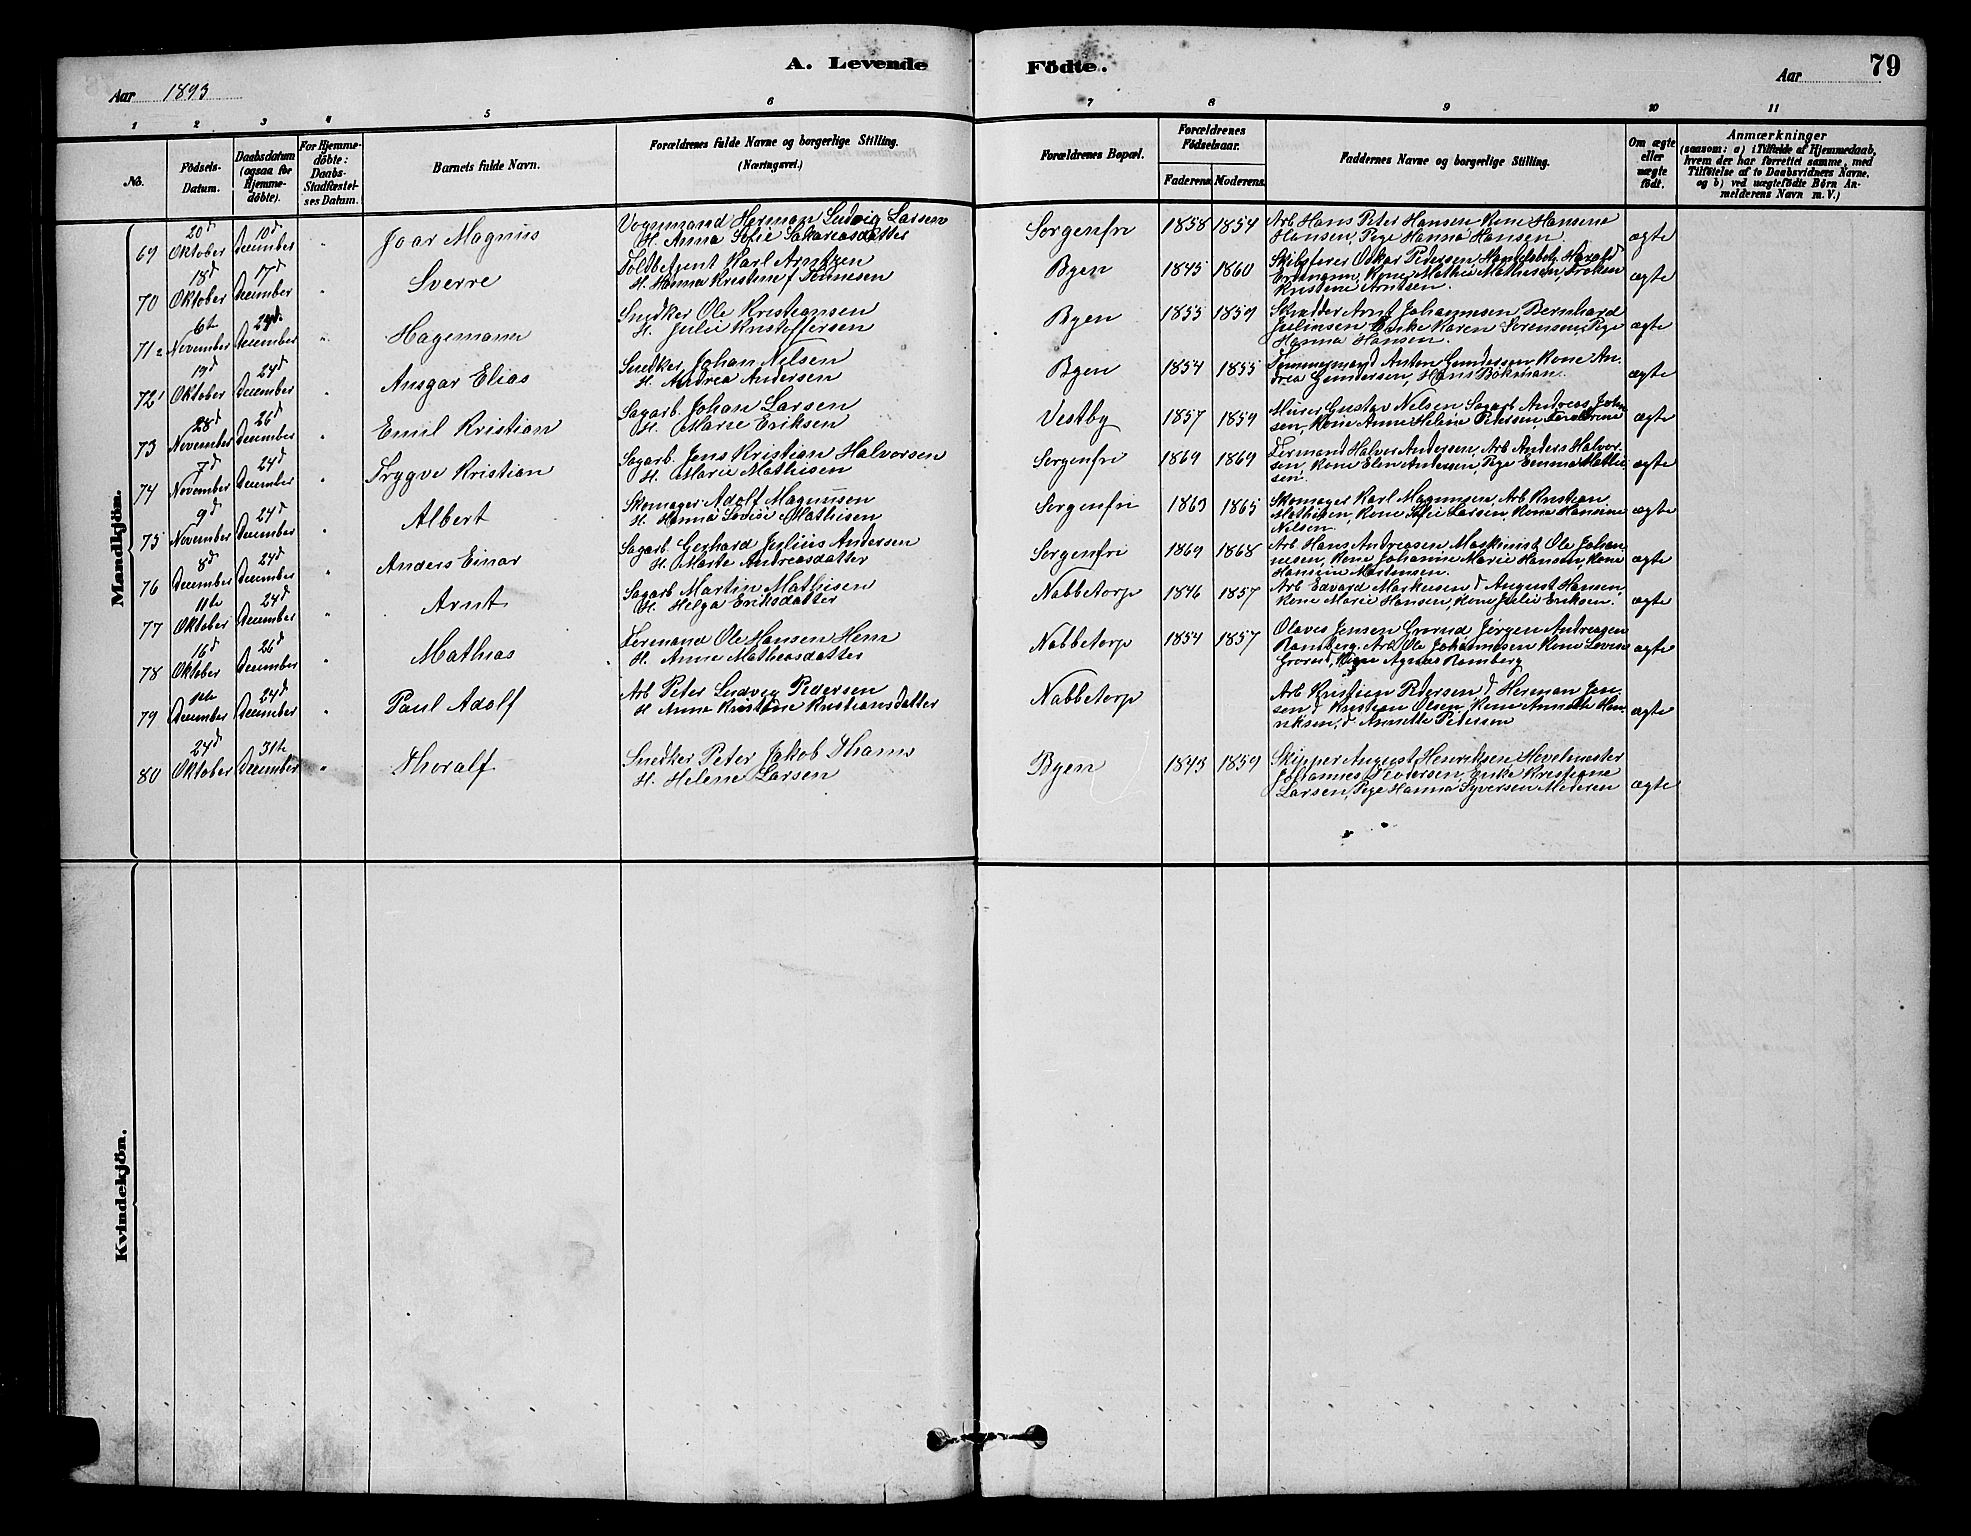 A. Levende Födte.
79
Aar 1893
Aar
1 2 3 4 5 6 7 8 9 10 11
No.
Födsels-Datum.
Daabsdatum (ogsaa for Hjemme-döbte).
For Hjemme-döbte: Daabs-Stadfæstel-ses Datum.
Barnets fulde Navn.
Forældrenes fulde Navne og borgerlige Stilling.
(Næringsvei.)
Forældrenes Bopæl.
Forældrenes Födselsaar.
Faderens. Moderens.
Faddernes Navne og borgerlige Stilling.
Om ægte eller uægte födt.
Anmærkninger
(saasom: a) i Tilfælde af Hjemmedaab,
hvem der har forrettet samme, med
Tilföielse af to Daabsvidners Navne,
og b) ved uægtefödte Börn An-
melderens Navn m. V.)
Mandkjön.
69 20d Oktober 10d December " Joar Magnus Vognmand Herman Ludvig Larsen
H. Anna Sofie Sakariasdatter Sorgenfri 1858 1854 Arb Hans Peter Hansen, Kone Hansine
Hansen, Pige Hanna Hansen. ægte
70 18d Oktober 17d December " Sverre Toldbetjent Karl Arntzen
H. Hanna Kristine f Tönnesen Byen 1845 1860 Skibsfører Oskar Pedersen, Handelsbet. Harald
Erdmann, Kone Mathie Mathiesen, Frøken
Kristine Arntsen. ægte
71 6te November 24d December " Hagemann Snedker Ole Kristiansen
H. Julie Kristoffersen Byen 1855 1859 Skrædder Arnt Johannesen, Bernhard
Juliussen, Enke Karen Sørensen, Pige
Hanna Hansen. ægte
72 19d Oktober 24d December " Ansgar Elias Snedker Johan Nilsen
H. Andrea Andersen Byen 1854 1855 Tømmermand Anton Gundersen, Kone An-
drea Gundersen, Hans Bökman. ægte
73 28d November 26d December " Emil Kristian Sagarb. Johan Larsen
H. Marie Eriksen Vestby 1857 1859 Murer Gustav Nelsen, Sagarb Andreas John-
sen, Kone Anne Helene Petersen, Foreldrene ægte
74 7d November 24d December " Trygve Kristian Sagarb. Jens Kristian Halvorsen
H. Marie Mathisen Sorgenfri 1869 1869 Formand Halvor Andersen, Arb Anders Halvor-
sen, Kone Elen Andersen, Pige Emma Mathie
sen. ægte
75 9d November 24d December " Albert Skomager Adolf Magnusen
H. Hanna Lovise Mathisen Sorgenfri 1863 1865 Skomager Karl Magnusen, Arb Kristian
Mathisen, Kone Sofie Larsen, Kone Hansine
Nilsen. ægte
76 8d December 24d December " Anders Einar Sagarb. Gerhard Julius Andersen
H. Marte Andreasdatter Sorgenfri 1869 1868 Arb Hans Andreasen, Maskinist Ole Johan-
nesen, Kone Johanne Marie Hansen, Kone
Hansine Mortensen. ægte
77 11te Oktober 24d December " Arnt Sagarb Martin Mathisen
H. Helga Eriksdatter Nabbetorp 1846 1857 Arb Edvard Markusen, d August Hansen,
Kone Marie Hansen, Kone Julie Eriksen. ægte
78 16d Oktober 26d December " Mathias Formand Ole Hansen Hem
H. Anne Mathiasdatter Nabbetorp 1854 1857 Olaves Jensen Grorud, Jørgen Andreasen
Ramberg, Arb Ole Johannesen, Kone Lovise
Grorud, Kone Agnes Ramberg ægte
79 December 24d December " Paul Adolf Arb Peter Ludvig Pedersen
H Anne Kristine Kristiansdatter Nabbetorp Arb Kristian Pedersen, d Herman Jen-
sen, d Kristian Olsen, Kone Annette Hen-
riksen, d Annette Pedersen ægte
80 24d Oktober 31te December " Thoralf Snedker Peter Jakob Thams
H. Helene Larsen Byen 1843 1859 Skipper August Henriksen, Hovelmester
Johannes Teodorsen, Enke Kristiane
Larsen, Pige Hanna Syversen, Moderen ægte
Kvindekjön.